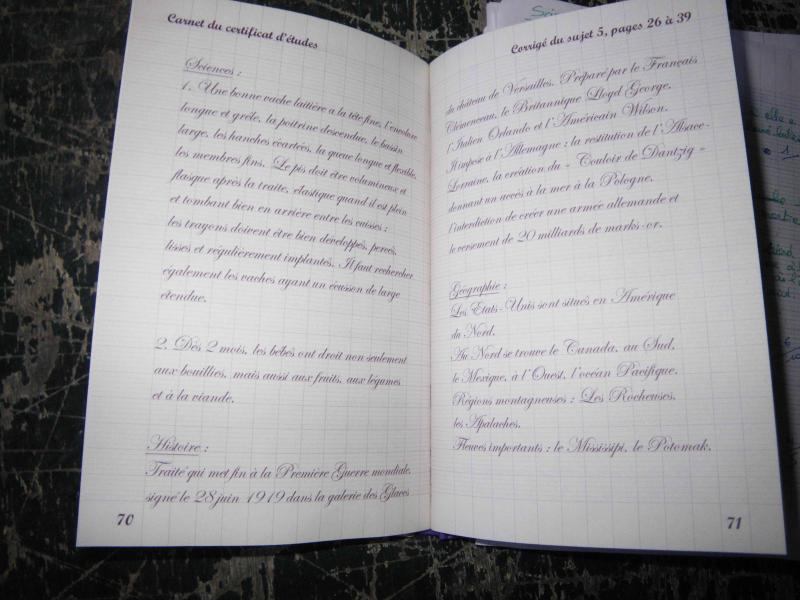 Carnet du certificat d'études
Sciences :
1. Une bonne vache laitière a la tête fine, l'encolure
longue et grêle, la poitrine descendue, le bassin
large, les hanches écartées, la queue longue et flexible,
les membres fins. Le pis doit être volumineux et
flasque après la traite, élastique quand il est plein
et tombant bien en arrière entre les cuisses ;
les trayons doivent être bien développés, percés,
lisses et régulièrement implantés. Il faut rechercher
également les vaches ayant un écusson de large
étendue.
2. Dès 2 mois, les bébés ont droit non seulement
aux bouillies, mais aussi aux fruits, aux légumes
et à la viande.
Histoire :
Traité qui met fin à la Première Guerre mondiale,
signé le 28 juin 1919 dans la galerie des Glaces
70
Corrigé du sujet 5, pages 26 à 39
du château de Versailles. Préparé par le Français
Clémenceau, le Britannique Lloyd George,
l'Italien Orlando et l'Américain Wilson.
Il impose à l'Allemagne : la restitution de l'Alsace-
Lorraine, la création du « Couloir de Dantzig »
donnant un accès à la mer à la Pologne,
l'interdiction de créer une armée allemande et
le versement de 20 milliards de marks-or.
Géographie :
Les Etats-Unis sont situés en Amérique
du Nord.
Au Nord se trouve le Canada, au Sud,
le Mexique, à l'Ouest, l'océan Pacifique.
Régions montagneuses : Les Rocheuses,
les Apalaches.
Fleuves importants : le Mississipi, le Potomak.
71